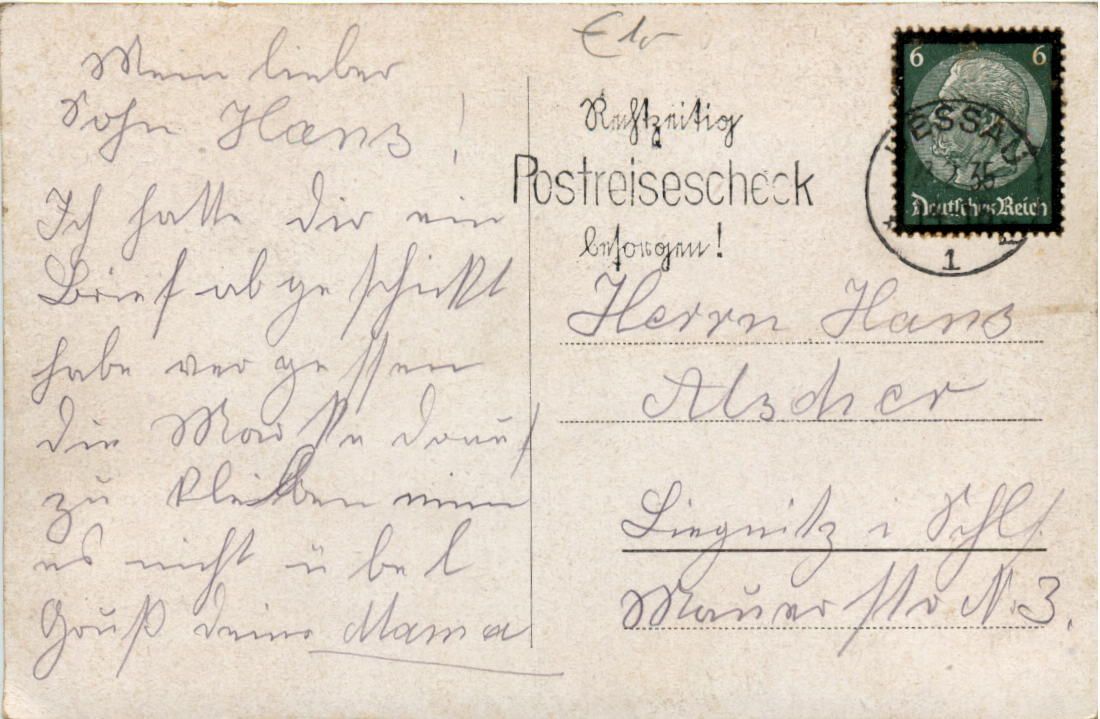 Mein lieber
Sohn Hans!
Ich hatte dir ein
Brief abgeschickt
habe vergessen
die Marke darauf
zu kleiben nimm
es nicht übel
Gruß deine Mama
Rechtzeitig
Postreisescheck
besorgen!
6 6
DESSAU
35
Deutsches Reich
1
Herrn Hans
Alscher
Liegnitz i Schls.
Mauerstr N. 3.